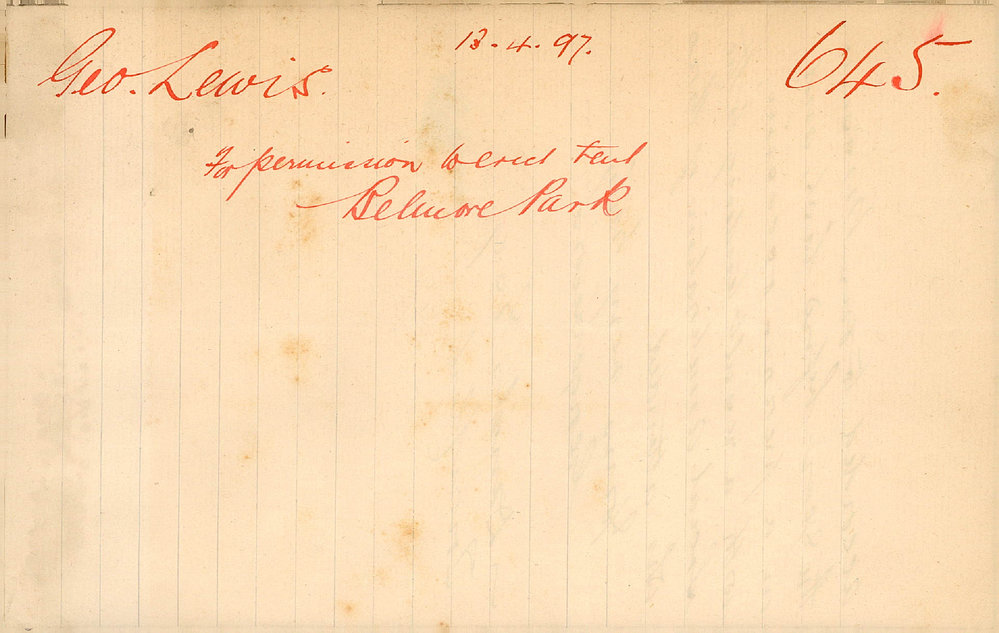 Geo. Lewis.
13.4.97.
645.
For permission to erect tent
Belmore Park